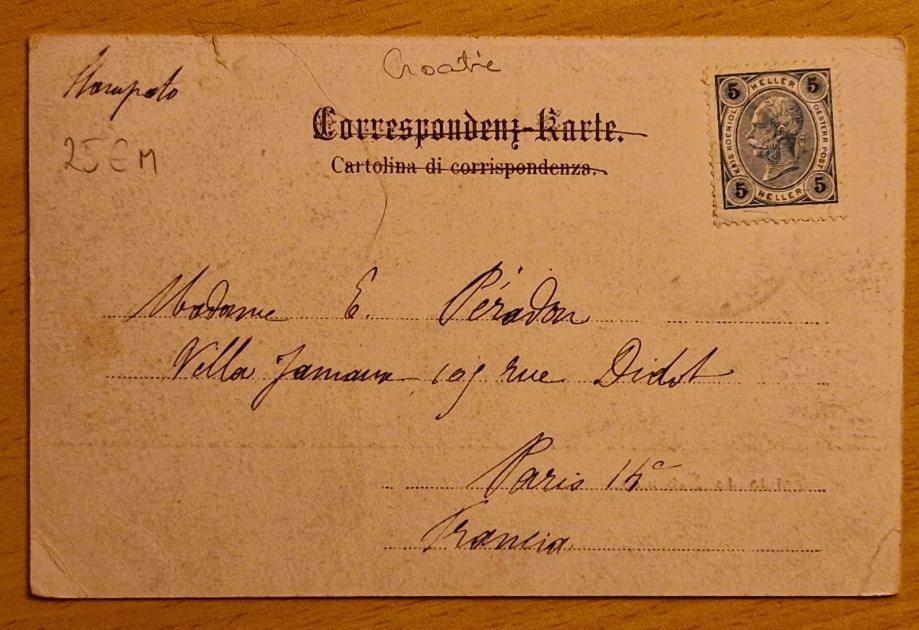 Croatie
Stampato
25 € M
Correspondenz-Karte.
Cartolina di corrispondenza.
5 HELLER 5
KAIS. KOENIGL. OESTERR. POST
5 HELLER 5
Madame E. Péradon
Villa Jamain 109 rue Didot
Paris 14e
Francia